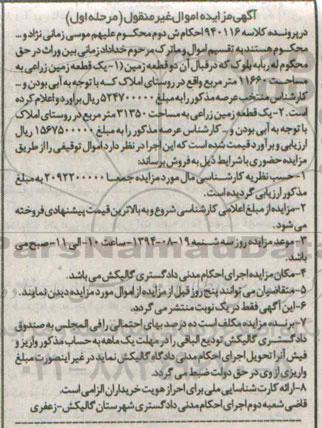 آگهی مزایده اموال غیر منقول (مرحله اول)
در پرونده کلاسه ۹۴۰۱۱۶ احکام ش دوم محکوم علیهم موسی زمانی نژاد و...
محکوم هستند به تقسیم اموال و ماترک مرحوم خداداد زمانی بین وراث در حق
محکوم له ربابه بلوک که در قبال آن دو قطعه زمین (۱- یک قطعه زمین زراعی به
مساحت ۱۱۶۶۰ متر مربع واقع در روستای املاک که با توجه به آبی بودن و...
کارشناس منتخب عرصه مذکور را به مبلغ ۵۲۴۷۰۰۰۰۰ ریال برآورد و اعلام کرده
است. ۲- یک قطعه زمین زراعی به مساحت ۳۱۳۵۰ متر مربع در روستای املاک
با توجه به آبی بودن و... کارشناس عرصه مذکور را به مبلغ ۱۵۶۷۵۰۰۰۰۰ ریال
ارزیابی و برآورد قیمت شده است که این اجرا در نظر دارد اموال توقیفی را از طریق
مزایده حضوری با شرایط ذیل به فروش برساند:
۱- حسب نظریه کارشناسی مال مورد مزایده جمعا ۲۰۹۲۲۰۰۰۰۰ به مبلغ
مذکور ارزیابی گردیده است.
۲- مزایده از مبلغ اعلامی کارشناسی شروع و به بالاترین قیمت پیشنهادی فروخته
می شود.
۳- موعد مزایده روز سه شنبه ۱۹-۰۸-۱۳۹۴- ساعت ۱۰- الی ۱۱- صبح می
باشد.
۴- مکان مزایده اجرای احکام مدنی دادگستری گالیکش می باشد.
۵- متقاضیان می توانند پنج روز قبل از مزایده از اموال مورد مزایده دیدن نمایند.
۶- این آگهی فقط در یک نوبت منتشر می گردد.
۷- برنده مزایده مکلف است ده درصد بهای احتمالی را فی المجلس به صندوق
دادگستری گالیکش تودیع الباقی را در مهلت یک ماهه به حساب مذکور واریز و
فیش آنرا تحویل اجرای احکام مدنی دادگاه گالیکش نماید در غیر اینصورت مبلغ
واریزی از وی در حق دولت ضبط می گردد.
۸- ارائه کارت شناسایی ملی برای احراز هویت خریداران الزامی است.
قاضی شعبه دوم اجرای احکام مدنی دادگستری شهرستان گالیکش - زعفری